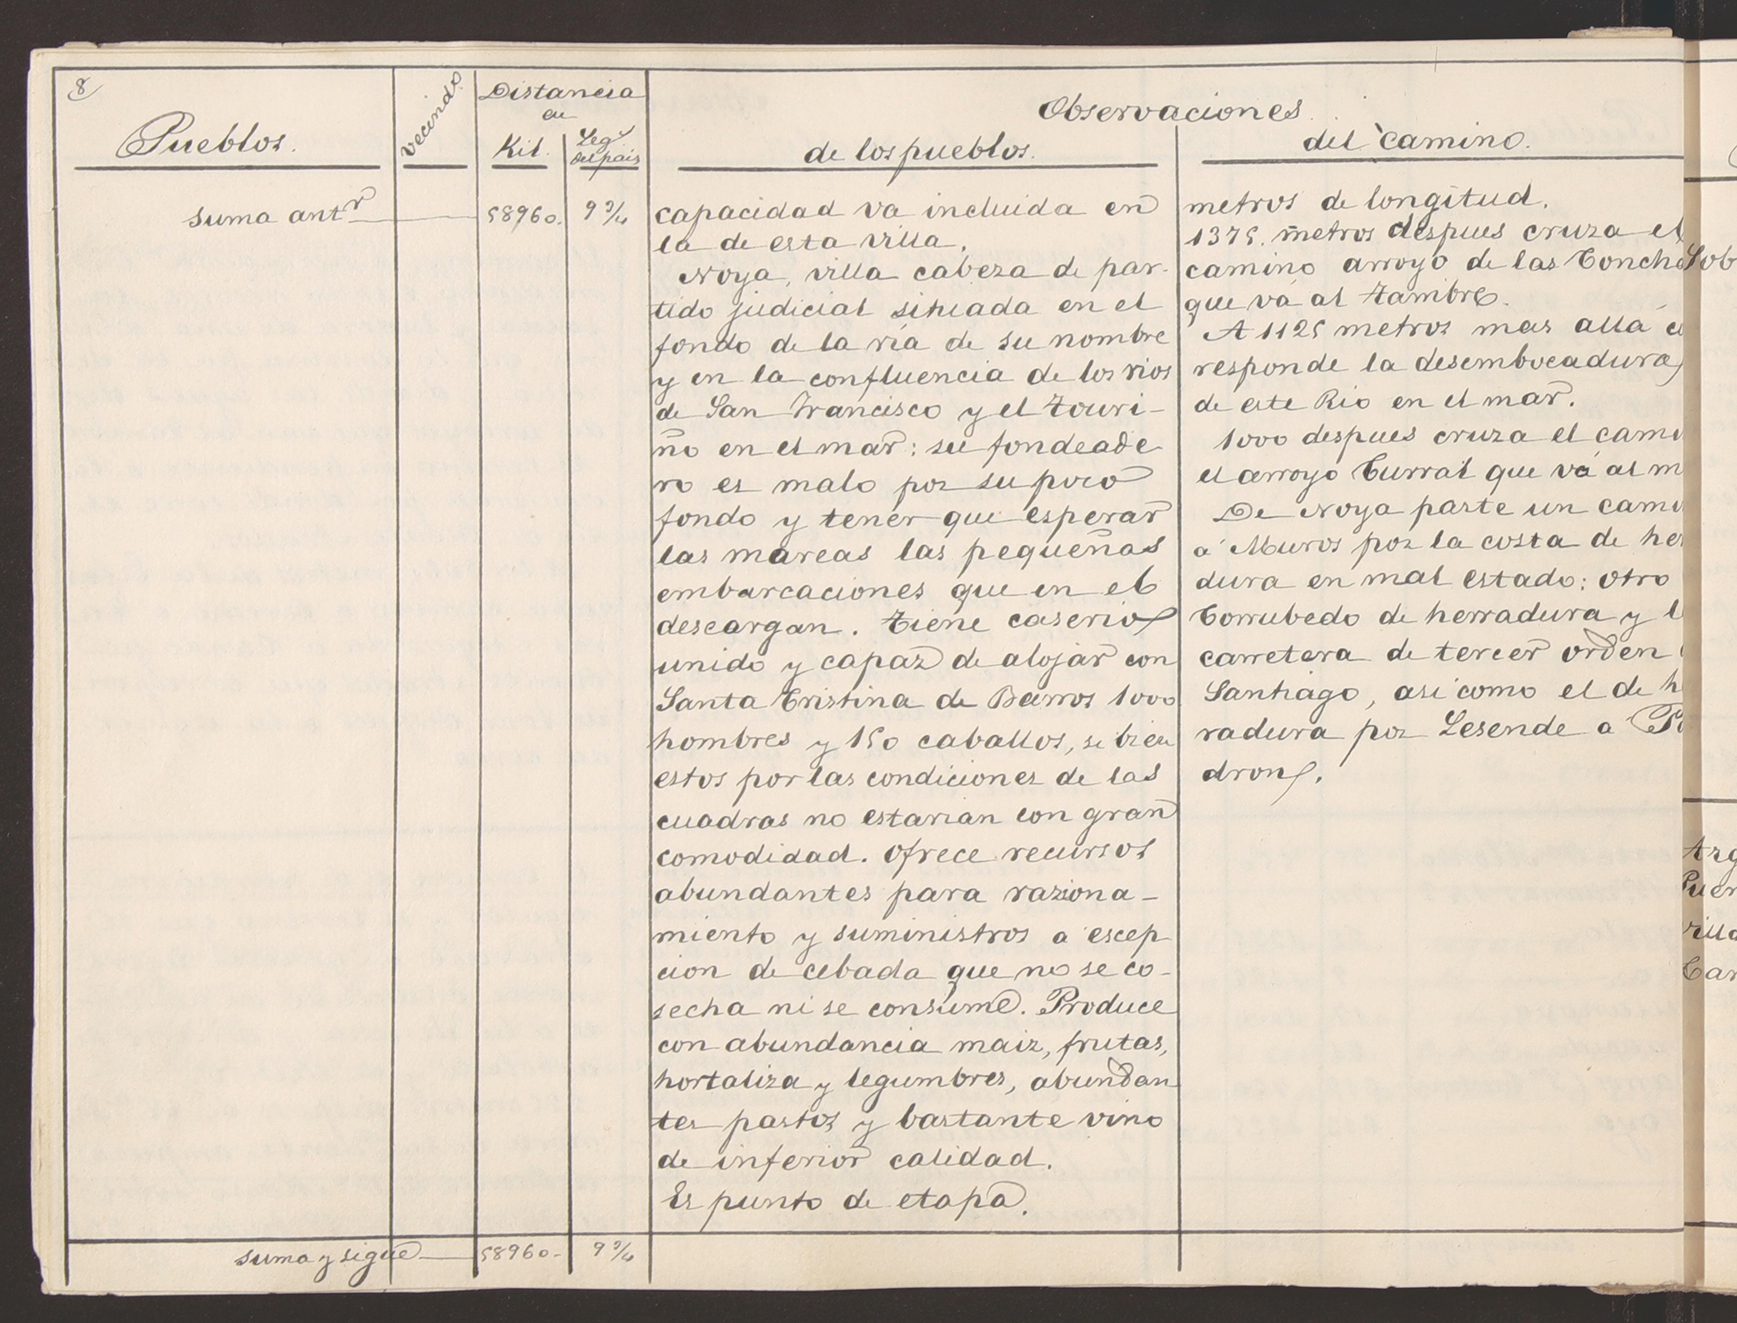 8
Pueblos.
vecind.º
Distancia
en
Kil.
Leg.ˢ
del pais
Observaciones.
de los pueblos.
del camino.
suma ant.ʳ
58960.
9 3/4
capacidad va incluida en
la de esta villa.
Noya, villa cabeza de par-
tido judicial situada en el
fondo de la ria de su nombre
y en la confluencia de los rios
de San Francisco y el Touri-
ño en el mar: su fondeade
ro es malo por su poco
fondo y tener que esperar
las mareas las pequeñas
embarcaciones que en el
descargan. Tiene caserio
unido y capaz de alojar con
Santa Cristina de Barros 1000
hombres y 150 caballos, si bien
estos por las condiciones de las
cuadras no estarian con gran
comodidad. Ofrece recursos
abundantes para raziona-
miento y suministros a escep
cion de cebada que no se co-
secha ni se consume. Produce
con abundancia maiz, frutas,
hortaliza y legumbres, abundan
tes pastos y bastante vino
de inferior calidad.
Es punto de etapa.
metros de longitud.
1375. metros despues cruza el
camino arroyo de las Concha
que vá al Tambre.
A 1125 metros mas allá co
responde la desembocadura
de este Rio en el mar.
1000 despues cruza el cami
el arroyo Currat que vá al m
De Noya parte un cami
á Muros por la costa de her
dura en mal estado: otro
Corrubedo de herradura y l
carretera de tercer orden
Santiago, asi como el de h
radura por Lesende a Pa
dron.
suma y sigue
58960-
9 3/4
Sob
Arg
Puer
rilla
Car